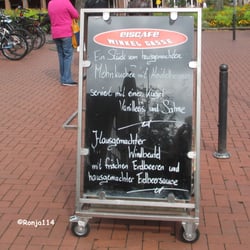 EISCAFE
WINKEL GASSE
Ein Stück vom hausgemachten
Mohnkuchen mit
serviert mit einer Kugel
Vanilleeis und Sahne
Hausgemachter
Windbeutel
mit frischen Erdbeeren und
hausgemachter Erdbeersauce
©Ronja114